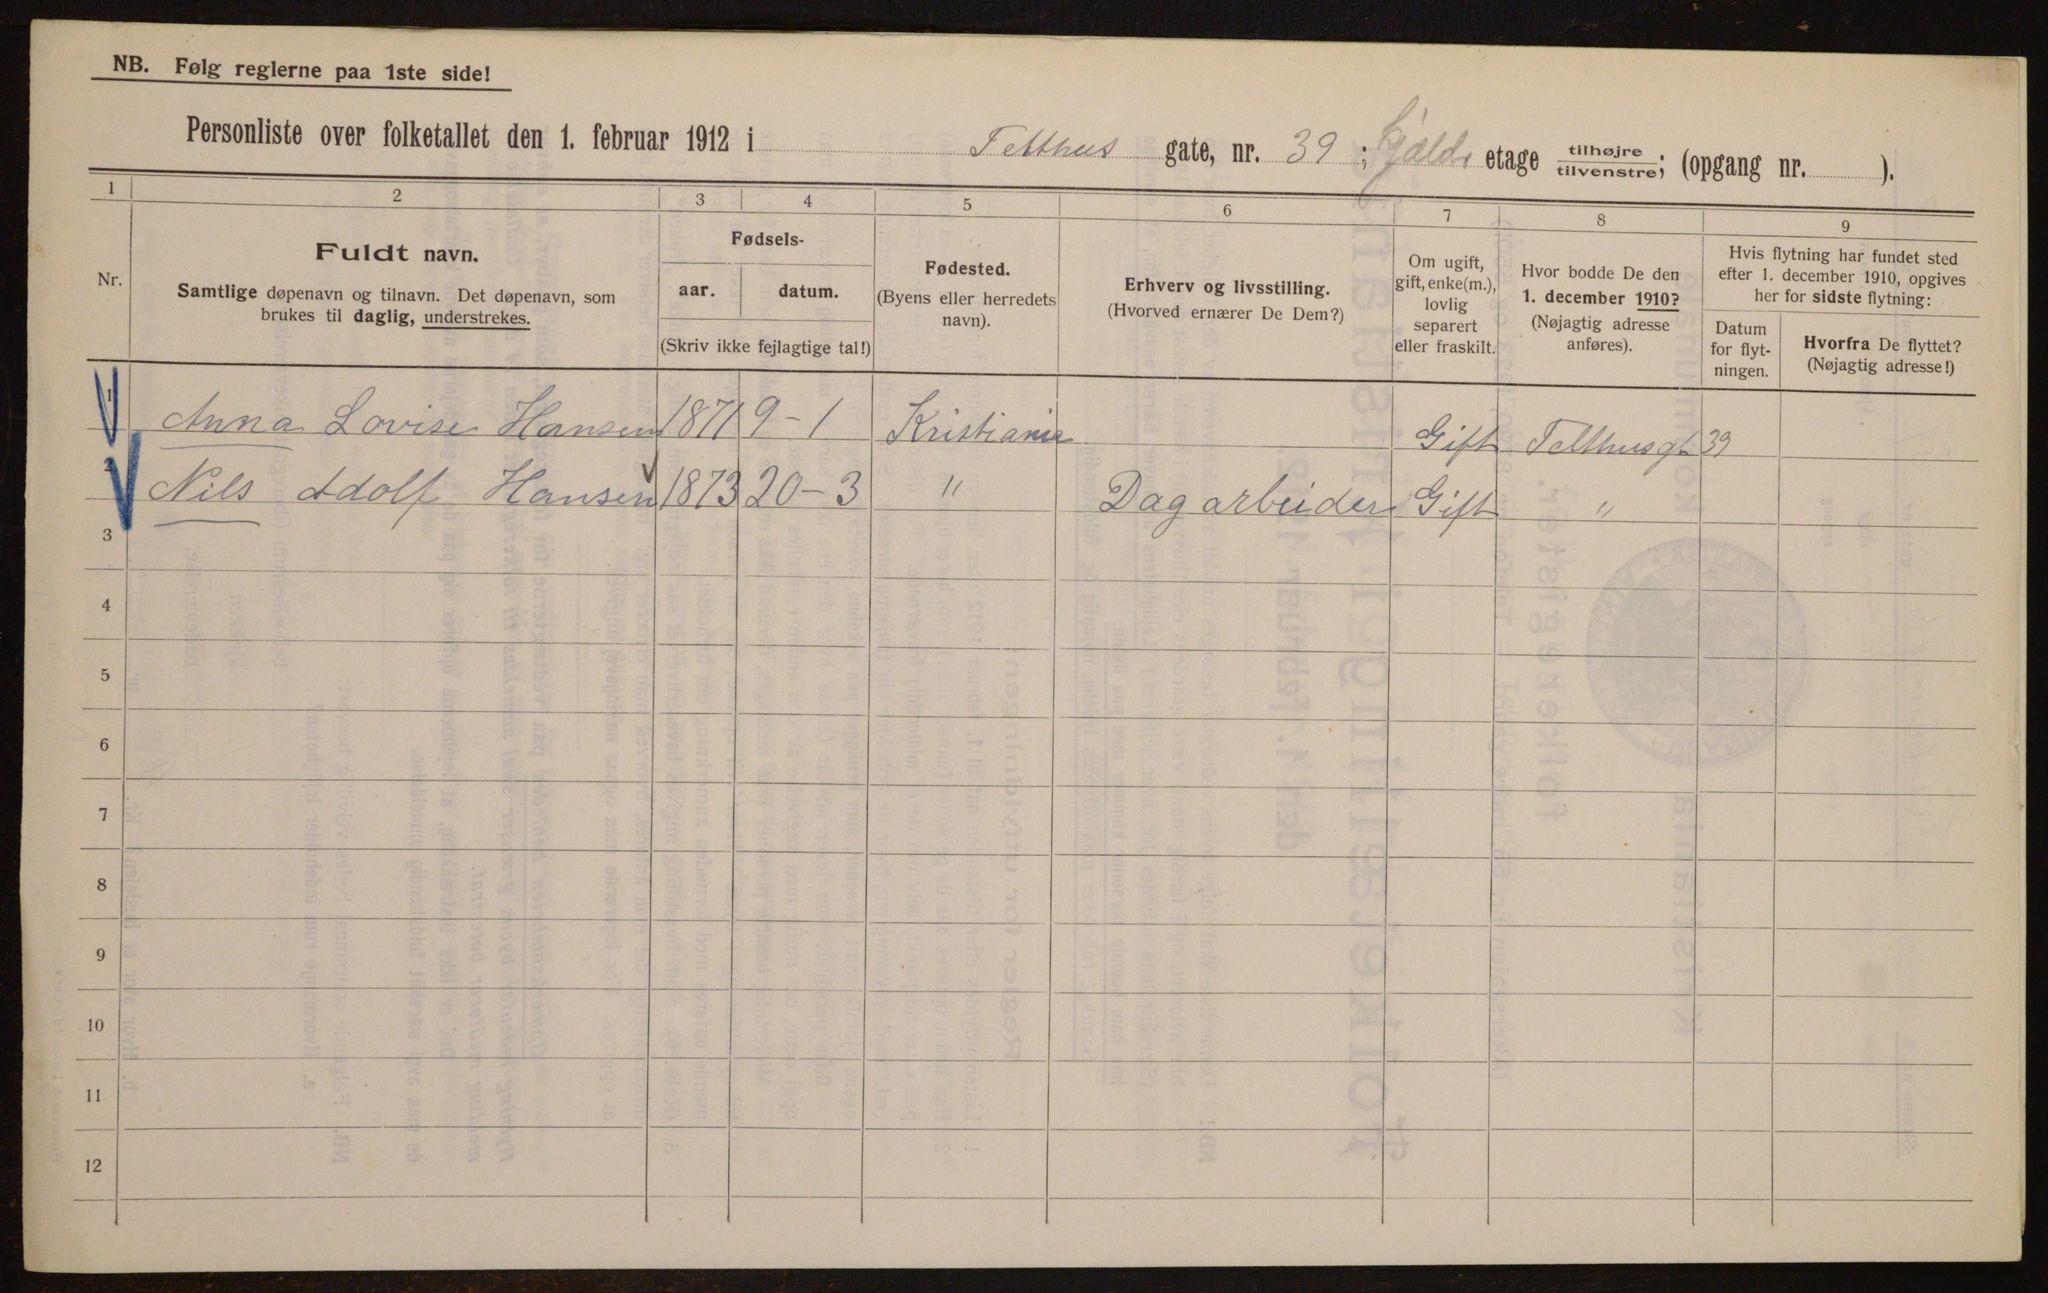 NB. Følg reglerne paa 1ste side!
Personliste over folketallet den 1. februar 1912 i Telthus gate, nr. 39; etage tilhøjre/tilvenstre; (opgang nr. ).
1 2 3 4 5 6 7 8 9
Nr.
Fuldt navn.
Samtlige døpenavn og tilnavn. Det døpenavn, som
brukes til daglig, understrekes.
Fødsels-
aar. datum.
(Skriv ikke fejlagtige tal!)
Fødested.
(Byens eller herredets
navn).
Erhverv og livsstilling.
(Hvorved ernærer De Dem?)
Om ugift,
gift, enke(m.),
lovlig
separert
eller fraskilt.
Hvor bodde De den
1. december 1910?
(Nøjagtig adresse
anføres).
Hvis flytning har fundet sted
efter 1. december 1910, opgives
her for sidste flytning:
Datum
for flyt-
ningen.
Hvorfra De flyttet?
(Nøjagtig adresse!)
1 Anna Lovise Hansen 1871 9-1 Kristiania Gift Telthusgt 39
2 Nils Adolf Hansen 1873 20-3 " Dagarbeider Gift "
3
4
5
6
7
8
9
10
11
12